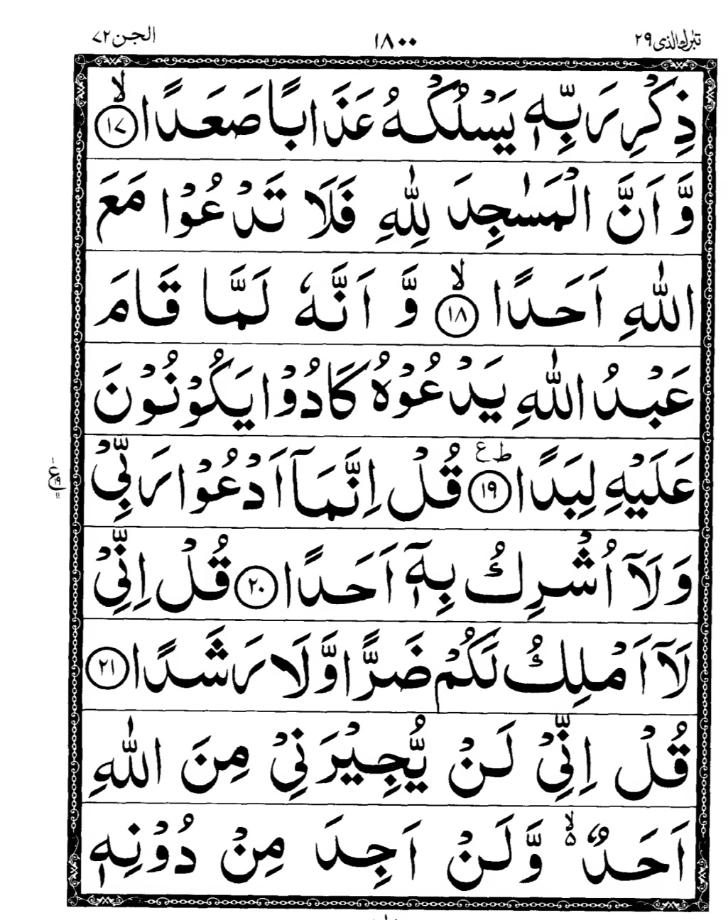 تبٰرك الذی ٢٩ ١٨٠٠ الجن ٧٢
ذِكْرِ رَبِّهٖ يَسْلُكْهُ عَذَابًا صَعَدًا ۙ‏ ﴿١٧﴾
وَّ اَنَّ الْمَسٰجِدَ لِلّٰهِ فَلَا تَدْعُوْا مَعَ
اللّٰهِ اَحَدًا ۙ‏ ﴿١٨﴾ وَّ اَنَّهٗ لَمَّا قَامَ
عَبْدُ اللّٰهِ يَدْعُوْهُ كَادُوْا يَكُوْنُوْنَ
عَلَيْهِ لِبَدًا ؕع ﴿١٩﴾ قُلْ اِنَّمَاۤ اَدْعُوْا رَبِّىْ
وَلَاۤ اُشْرِكُ بِهٖۤ اَحَدًا ﴿٢٠﴾ قُلْ اِنِّىْ
لَاۤ اَمْلِكُ لَكُمْ ضَرًّا وَّلَا رَشَدًا ﴿٢١﴾
قُلْ اِنِّىْ لَنْ يُّجِيْرَنِىْ مِنَ اللّٰهِ
اَحَدٌ ۙ۬ وَّلَنْ اَجِدَ مِنْ دُوْنِهٖ